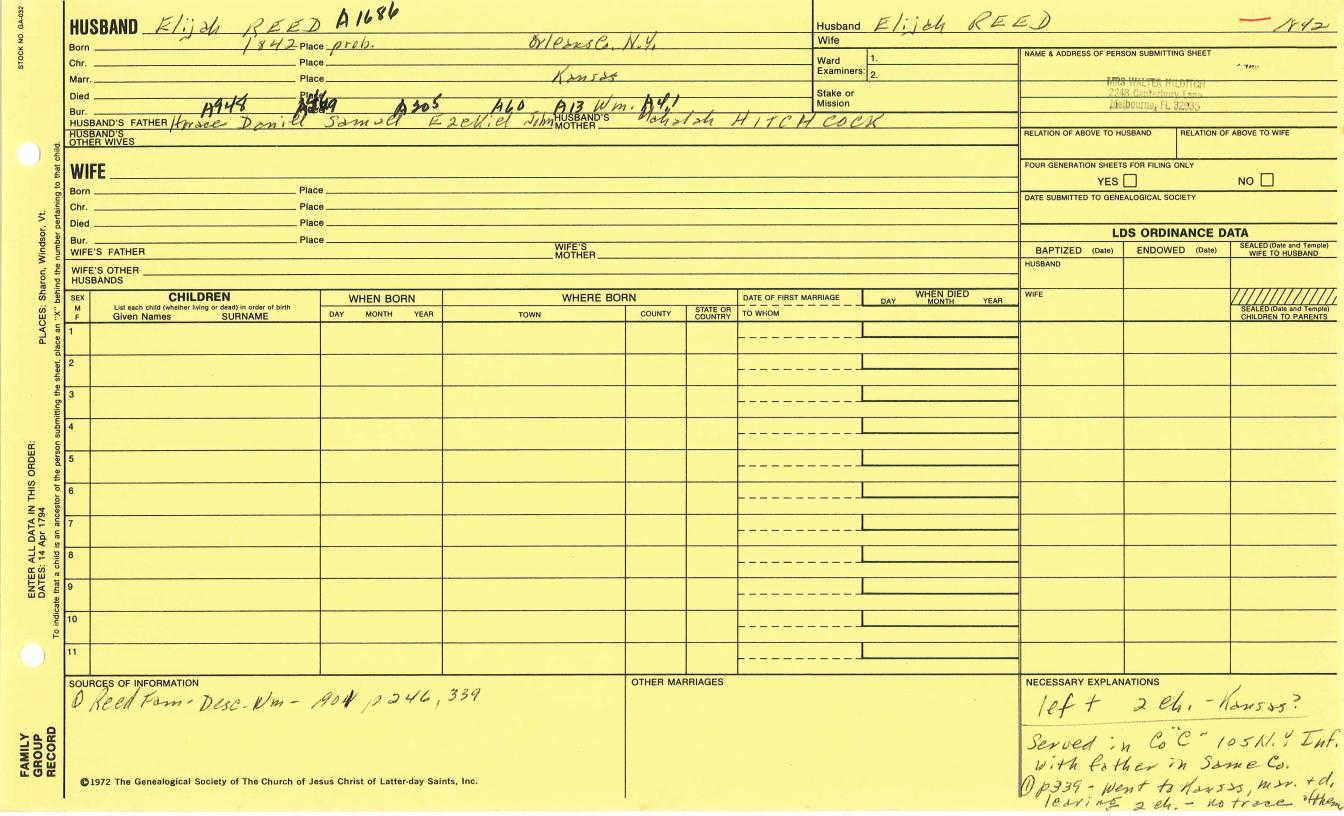 STOCK NO. GA-032
HUSBAND Elijah REED A1686
Born 1842 Place prob. Orleans Co. N.Y.
Chr. Place
Marr. Place Kansas
Died Place
Bur. A948 A205 A60 A13 Wm. A4,1
HUSBAND'S FATHER Horace Daniel Samuel Ezekiel John HUSBAND'S MOTHER Mahalah HITCHCOCK
HUSBAND'S OTHER WIVES
Husband Elijah REED 1842
Wife
Ward Examiners: 1.
2.
Stake or Mission
NAME & ADDRESS OF PERSON SUBMITTING SHEET
MRS WALTER HILDITCH
2248 Canterbury Lane
Melbourne, FL 32935
RELATION OF ABOVE TO HUSBAND RELATION OF ABOVE TO WIFE
FOUR GENERATION SHEETS FOR FILING ONLY
YES NO
DATE SUBMITTED TO GENEALOGICAL SOCIETY
WIFE
Born Place
Chr. Place
Died Place
Bur. Place
WIFE'S FATHER WIFE'S MOTHER
WIFE'S OTHER HUSBANDS
LDS ORDINANCE DATA
BAPTIZED (Date) ENDOWED (Date) SEALED (Date and Temple) WIFE TO HUSBAND
HUSBAND
WIFE
SEALED (Date and Temple) CHILDREN TO PARENTS
SEX M F
CHILDREN
List each child (whether living or dead) in order of birth
Given Names SURNAME
WHEN BORN
DAY MONTH YEAR
WHERE BORN
TOWN COUNTY STATE OR COUNTRY
DATE OF FIRST MARRIAGE
TO WHOM
WHEN DIED
DAY MONTH YEAR
1
2
3
4
5
6
7
8
9
10
11
SOURCES OF INFORMATION
① Reed Fam- Desc. Wm- 1901 p246, 339
OTHER MARRIAGES
NECESSARY EXPLANATIONS
left 2 ch. - Kansas?
Served in Co "C" 105 N.Y Inf.
with father in Same Co.
① p339 - went to Kansas, mar. + d,
leaving 2 ch. - no trace of them
©1972 The Genealogical Society of The Church of Jesus Christ of Latter-day Saints, Inc.
FAMILY GROUP RECORD
ENTER ALL DATA IN THIS ORDER:
DATES: 14 Apr 1794
PLACES: Sharon, Windsor, Vt.
To indicate that a child is an ancestor of the person submitting the sheet, place an "X" behind the number pertaining to that child.